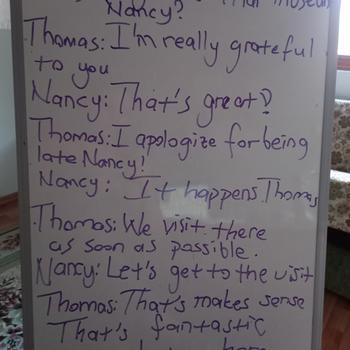 that museum
Nancy?
Thomas: I'm really grateful
to you
Nancy: That's great?
Thomas: I apologize for being
late Nancy!
Nancy: It happens Thomas
Thomas: We visit there
as soon as possible.
Nancy: Let's get to the visit
Thomas: That's makes sense
That's fantastic
here